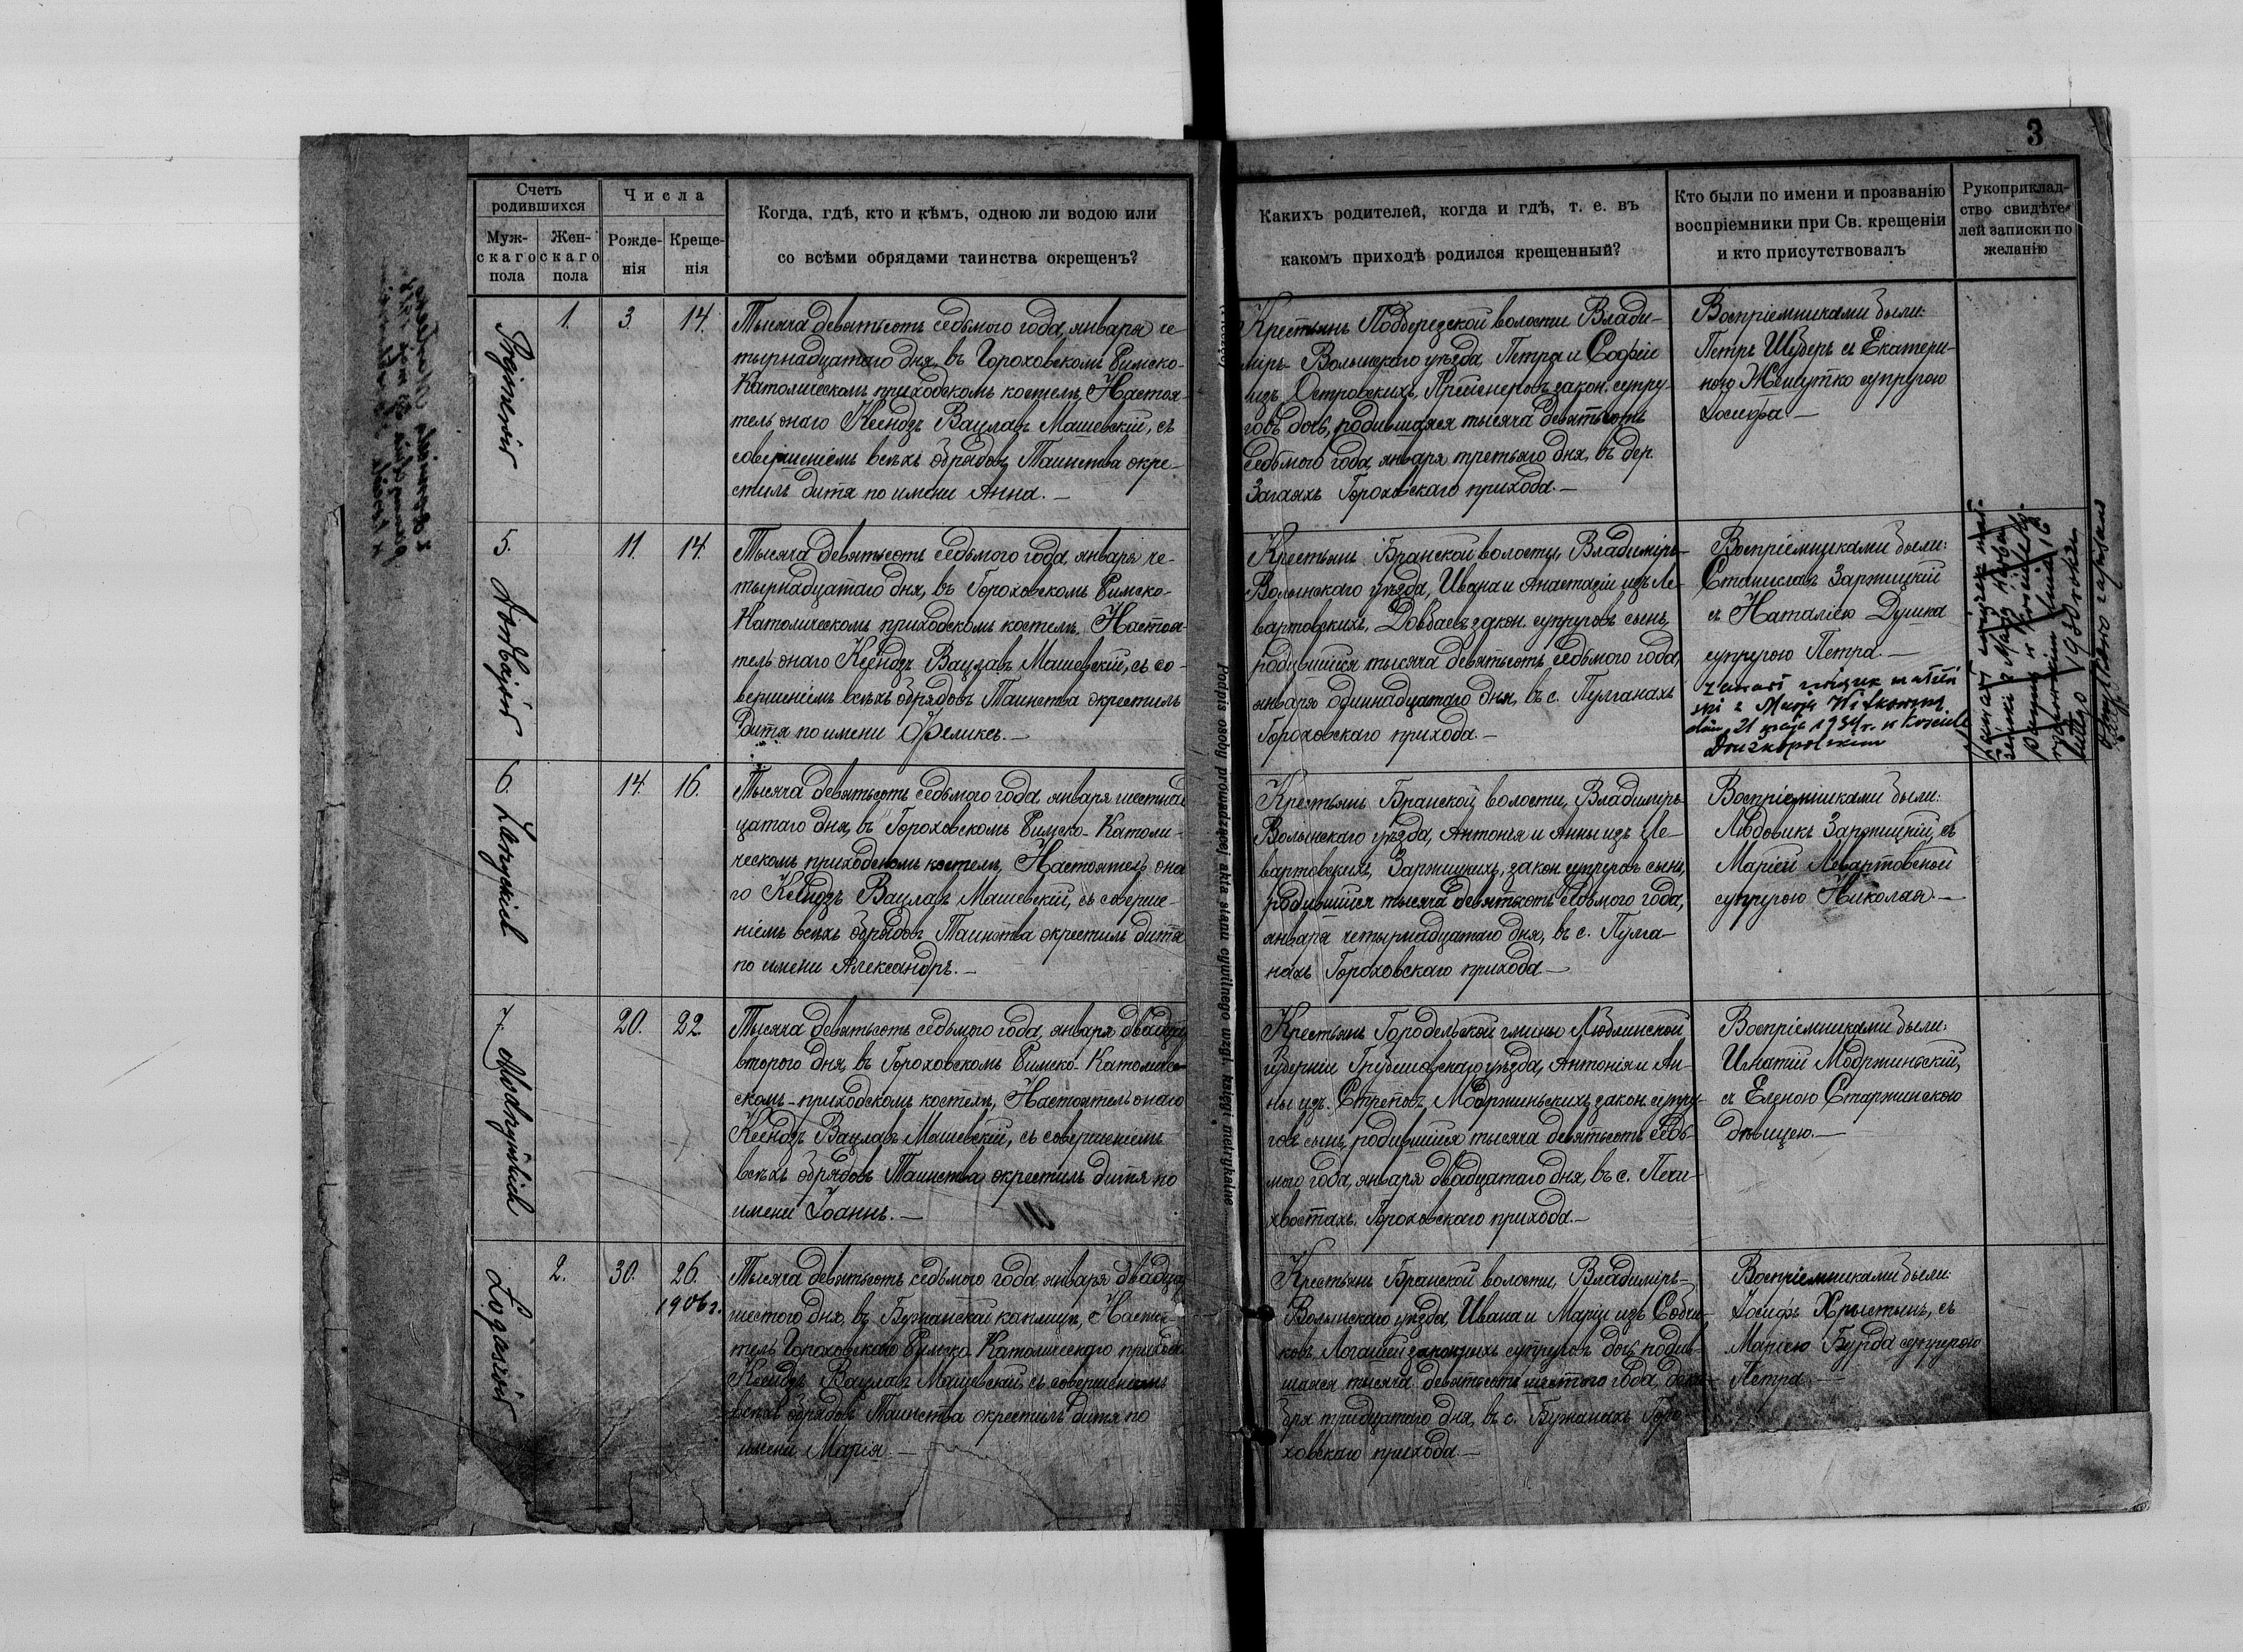 3
Счетъ родившихся
Числа
Когда, гдѣ, кто и кѣмъ, одною ли водою или
со всѣми обрядами таинства окрещенъ?
Муж-
скаго
пола
Жен-
скаго
пола
Рожде-
нія
Креще-
нія
Какихъ родителей, когда и гдѣ, т. е. въ
какомъ приходѣ родился крещенный?
Кто были по имени и прозванію
воспріемники при Св. крещеніи
и кто присутствовалъ
Рукоприклад-
ство свидѣте-
лей записки по
желанію
1.
3.
14.
Тысяча девятьсотъ седьмого года, января че-
тырнадцатаго дня, въ Гороховскомъ Римско-
Католическомъ приходскомъ костелѣ, Настоя-
тель онаго Ксендзъ Вацлавъ Машевскій, съ
совершеніемъ всѣхъ обрядовъ Таинства окре-
стилъ дитя по имени Анна.—
Крестьянъ Подберезской волости Влади-
міръ-Волынскаго уѣзда, Петра и Софіи
изъ Островскихъ, закон. супру-
говъ дочь, родившаяся тысяча девятьсотъ
седьмого года, января третьяго дня, въ дер.
Загаяхъ Гороховскаго прихода.—
Воспріемниками были:
Петръ Шуберъ съ Екатери-
ною супругою
Іосифа.—
5.
11.
14.
Тысяча девятьсотъ седьмого года, января че-
тырнадцатаго дня, въ Гороховскомъ Римско-
Католическомъ приходскомъ костелѣ, Настоя-
тель онаго Ксендзъ Вацлавъ Машевскій, съ со-
вершеніемъ всѣхъ обрядовъ Таинства окрестилъ
дитя по имени Феликсъ.—
Крестьянъ Бранской волости, Владиміръ-
Волынскаго уѣзда, Ивана и Анастазіи изъ Ле-
вартовскихъ, Довбаевъ закон. супруговъ сынъ,
родившійся тысяча девятьсотъ седьмого года,
января одиннадцатаго дня, въ с. Пулганахъ
Гороховскаго прихода.—
Воспріемниками были:
Станиславъ Заржицкій
съ Наталіею Душка
супругою Петра.—
zawarł związek małżeń
ski z Marją Witkowską
dnia 21 maja 1934 r. w kościele
Drużkopolskim
6. Zarzyckich
14.
16.
Тысяча девятьсотъ седьмого года, января шестнад
цатаго дня, въ Гороховскомъ Римско-Католи-
ческомъ приходскомъ костелѣ, Настоятель она
го Ксендзъ Вацлавъ Машевскій, съ соверше-
ніемъ всѣхъ обрядовъ Таинства окрестилъ дитя
по имени Александръ.—
Крестьянъ Бранской волости, Владиміръ-
Волынскаго уѣзда, Антонія и Анны изъ Ле-
вартовскихъ, Заржицкихъ, закон. супруговъ сынъ,
родившійся тысяча девятьсотъ седьмого года,
января четырнадцатаго дня, въ с. Пулга-
нахъ Гороховскаго прихода.—
Воспріемниками были:
Людовикъ Заржицкій, съ
Маріей Левартовской
супругою Николая.—
7. Modrzyńskich
20.
22.
Тысяча девятьсотъ седьмого года, января двадцать
второго дня, въ Гороховскомъ Римско-Католиче-
скомъ-приходскомъ костелѣ, Настоятель онаго
Ксендзъ Вацлавъ Машевскій, съ совершеніемъ
всѣхъ обрядовъ Таинства окрестилъ дитя по
имени Іоаннъ.—
Крестьянъ Городельской гмины Люблинской
губерніи Грубешовскаго уѣзда, Антонія и Ан-
ны изъ Модржинскихъ закон. супру-
говъ сынъ, родившійся тысяча девятьсотъ седь-
мого года, января двадцатаго дня, въ с. Печи-
хвостахъ Гороховскаго прихода.—
Воспріемниками были:
Игнатій Модржиньскій,
съ Еленою Старжинскою
дѣвицею.—
2.
30.
26.
1906 г.
Тысяча девятьсотъ седьмого года, января двадцать
шестого дня, въ Бужанской каплицѣ, Настоя-
тель Гороховскаго Римско-Католическаго прихода
Ксендзъ Вацлавъ Машевскій, съ совершеніемъ
всѣхъ обрядовъ Таинства окрестилъ дитя по
имени Марія.—
Крестьянъ Бранской волости, Владиміръ-
Волынскаго уѣзда, Ивана и Маріи изъ
законныхъ супруговъ дочь, родив-
шаяся тысяча девятьсотъ шестого года, дека-
бря тридцатаго дня, въ с. Бужанахъ Горо-
ховскаго прихода.—
Воспріемниками были:
Іосифъ Хрыстынъ, съ
Маріею Бурда супругою
Петра.—
Podpis osoby prowadzącej akta stanu cywilnego wzgl. księgi metrykalne